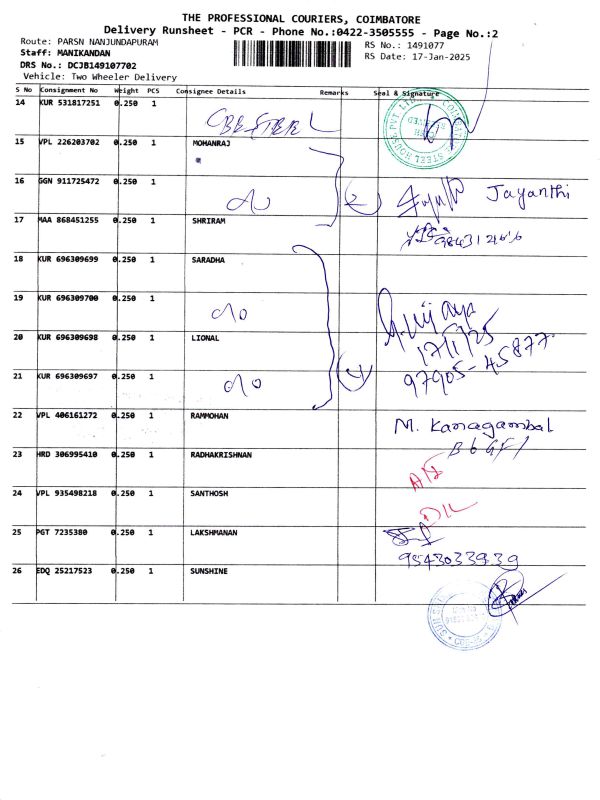 THE PROFESSIONAL COURIERS, COIMBATORE
Delivery Runsheet - PCR - Phone No.:0422-3505555 - Page No.:2
Route: PARSN NANJUNDAPURAM
Staff: MANIKANDAN
DRS No.: DCJB149107702
Vehicle: Two Wheeler Delivery
RS No.: 1491077
RS Date: 17-Jan-2025
S No Consignment No Weight PCS Consignee Details Remarks Seal & Signature
14 KUR 531817251 0.250 1
CBE STEEL
15 VPL 126203702 0.250 1 MOHANRAJ
16 GGN 911725472 0.250 1
do 2 Jayanthi
17 MAA 868451255 0.250 1 SHRIRAM
18 KUR 696309699 0.250 1 SARADHA
19 KUR 696309700 0.250 1
do G. Vijaya
17/1/25
20 KUR 696309698 0.250 1 LIONAL
97905-45877
21 KUR 696309697 0.250 1
do 4
22 VPL 406161272 0.250 1 RAMMOHAN M. Kanagambal
B6GF1
23 HRD 306995410 0.250 1 RADHAKRISHNAN
24 VPL 935498218 0.250 1 SANTHOSH D/L
25 PGT 7235380 0.250 1 LAKSHMANAN
9543033939
26 EDQ 25217523 0.250 1 SUNSHINE